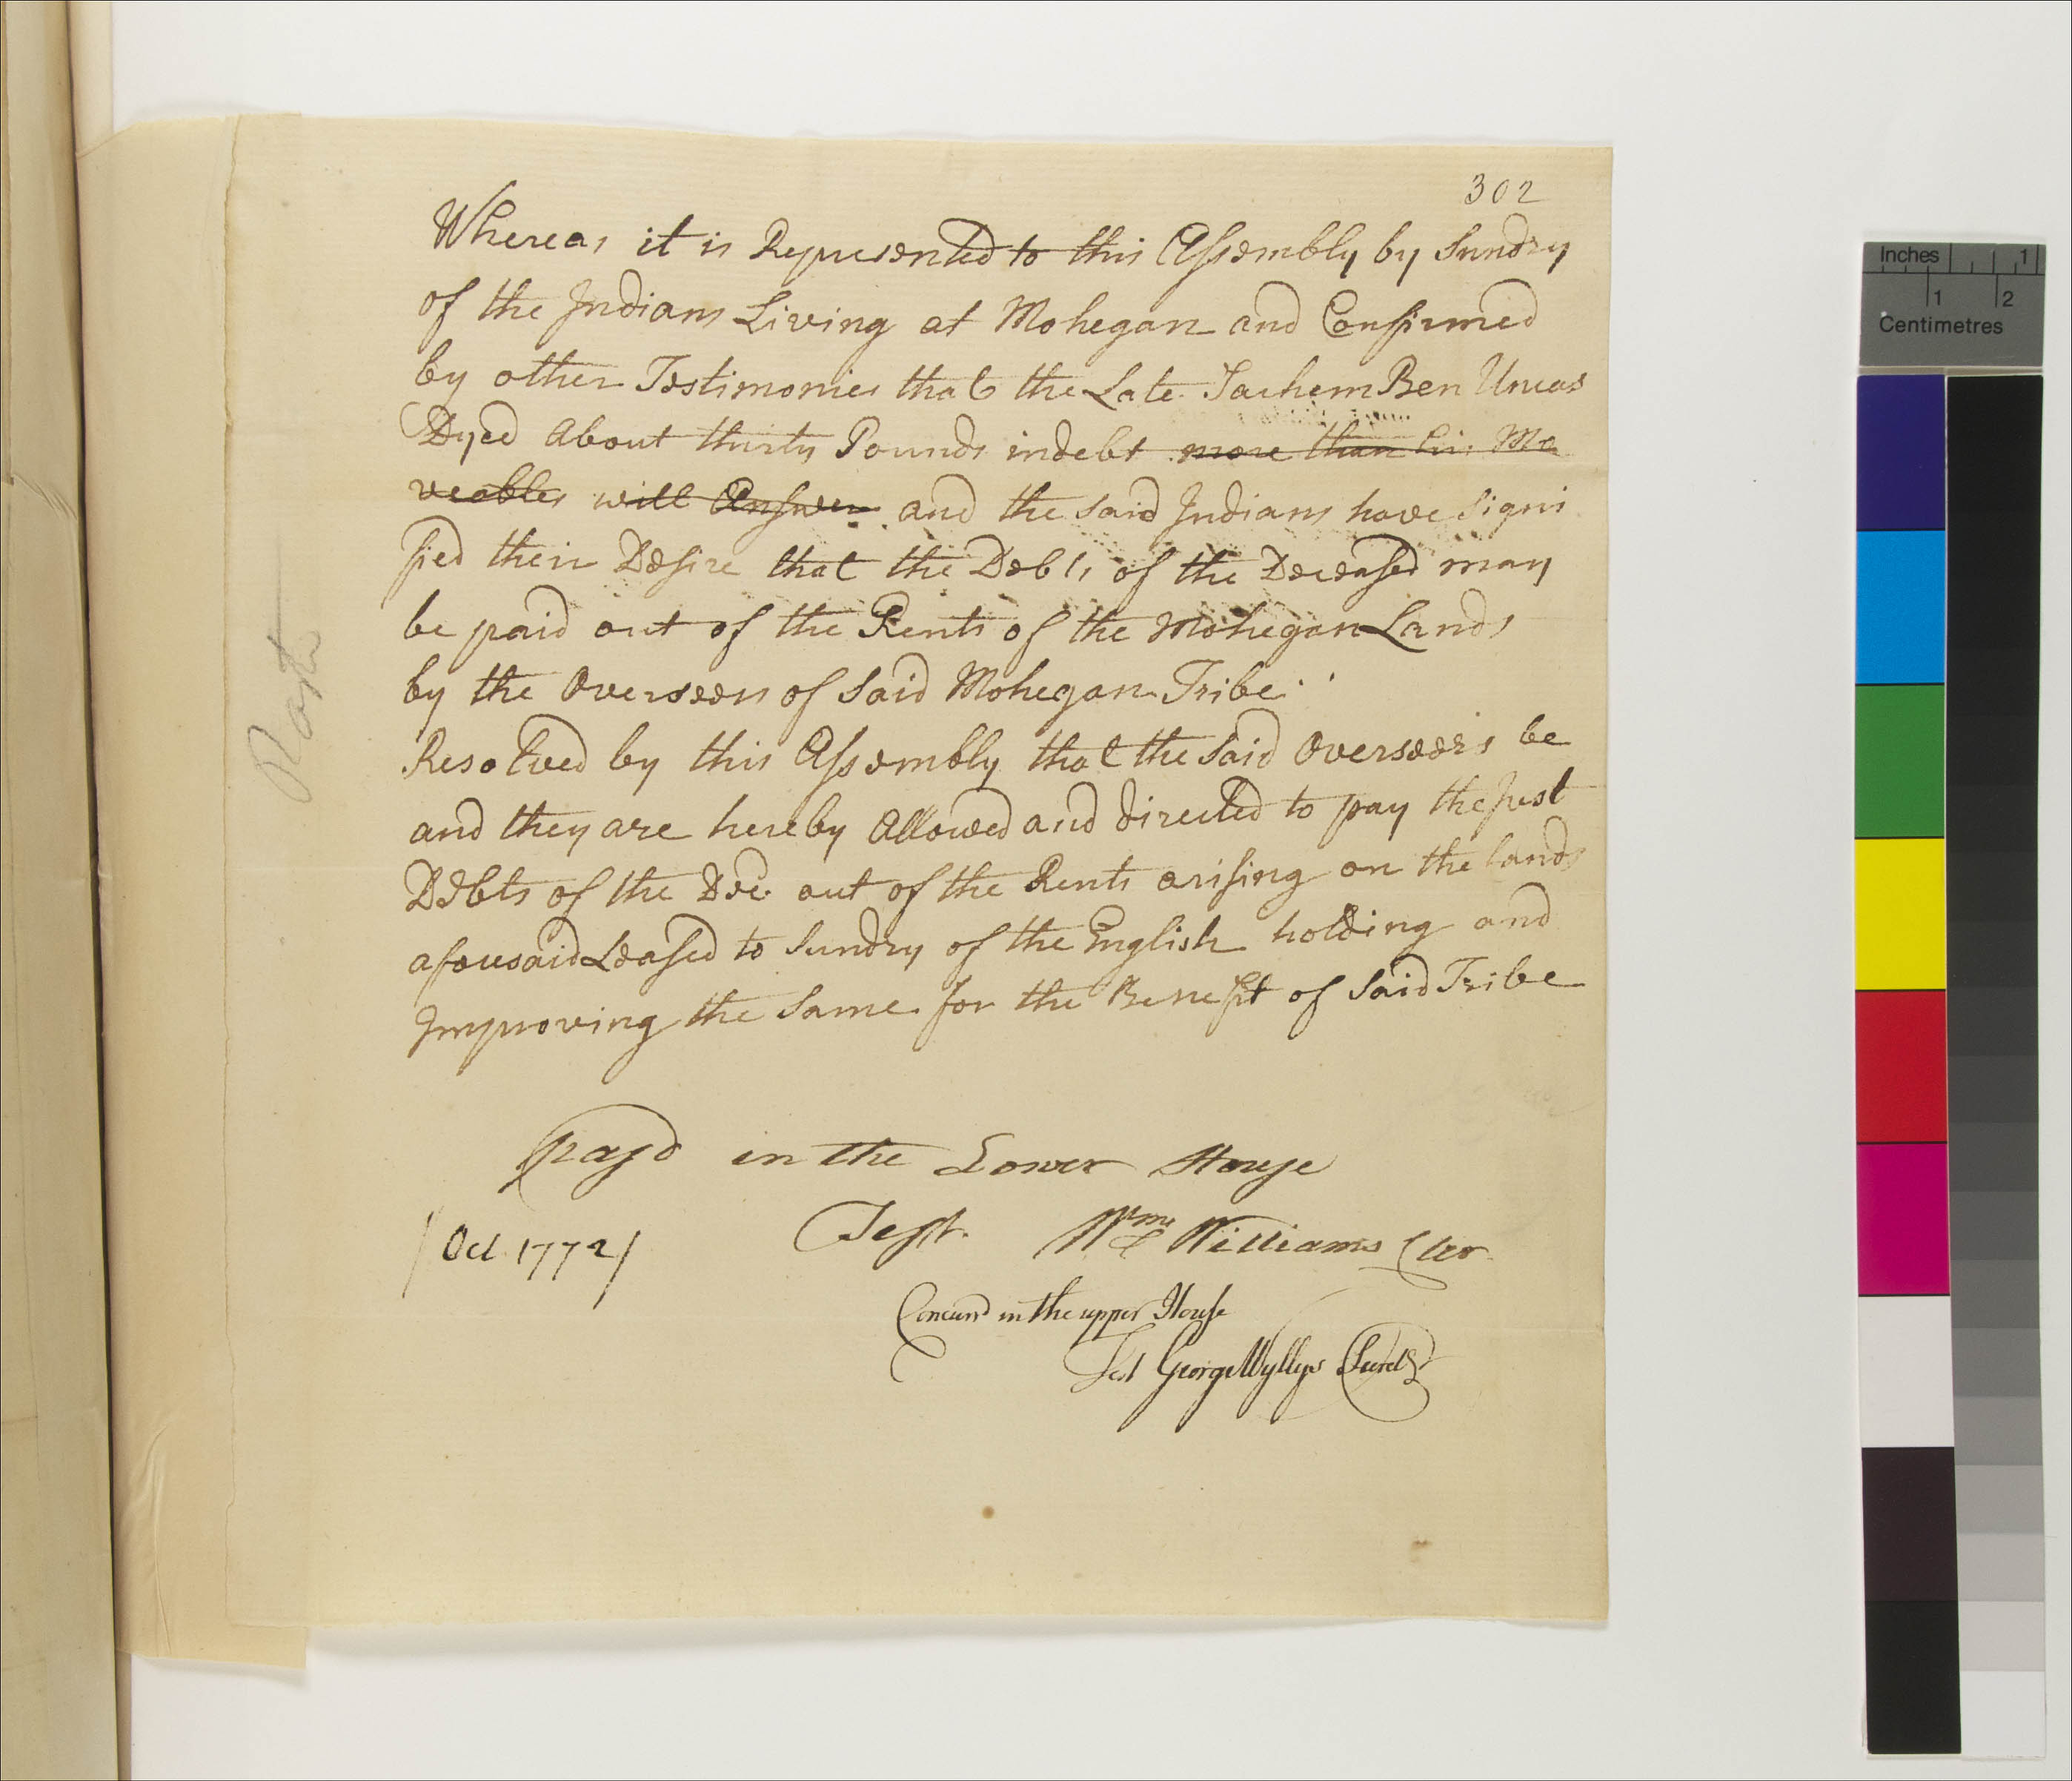 302
Whereas it is Represented to this Assembly by Sundry
of the Indians Living at Mohegan and Confirmed
by other Testimonies that the Late Sachem Ben Uncas
Dyed About thirty Pounds indebt more than his Mo
veables will Answer and the said Indians have signi
fied their Desire that the Debts of the Deceased may
be paid out of the Rents of the Mohegan Lands
by the Overseers of said Mohegan Tribe
Resolved by this Assembly that the said Overseers be
and they are hereby Allowed and directed to pay the Just
Debts of the Dec. out of the Rents arising on the lands
aforesaid Leased to Sundry of the English holding and
Improving the same for the Benefit of said Tribe
pasd in the Lower House
Test. Wm Williams Cler
/Oct 1772/
Concurd in the upper House
Test George Wyllys Secrety
Inches 1
1 2
Centimetres